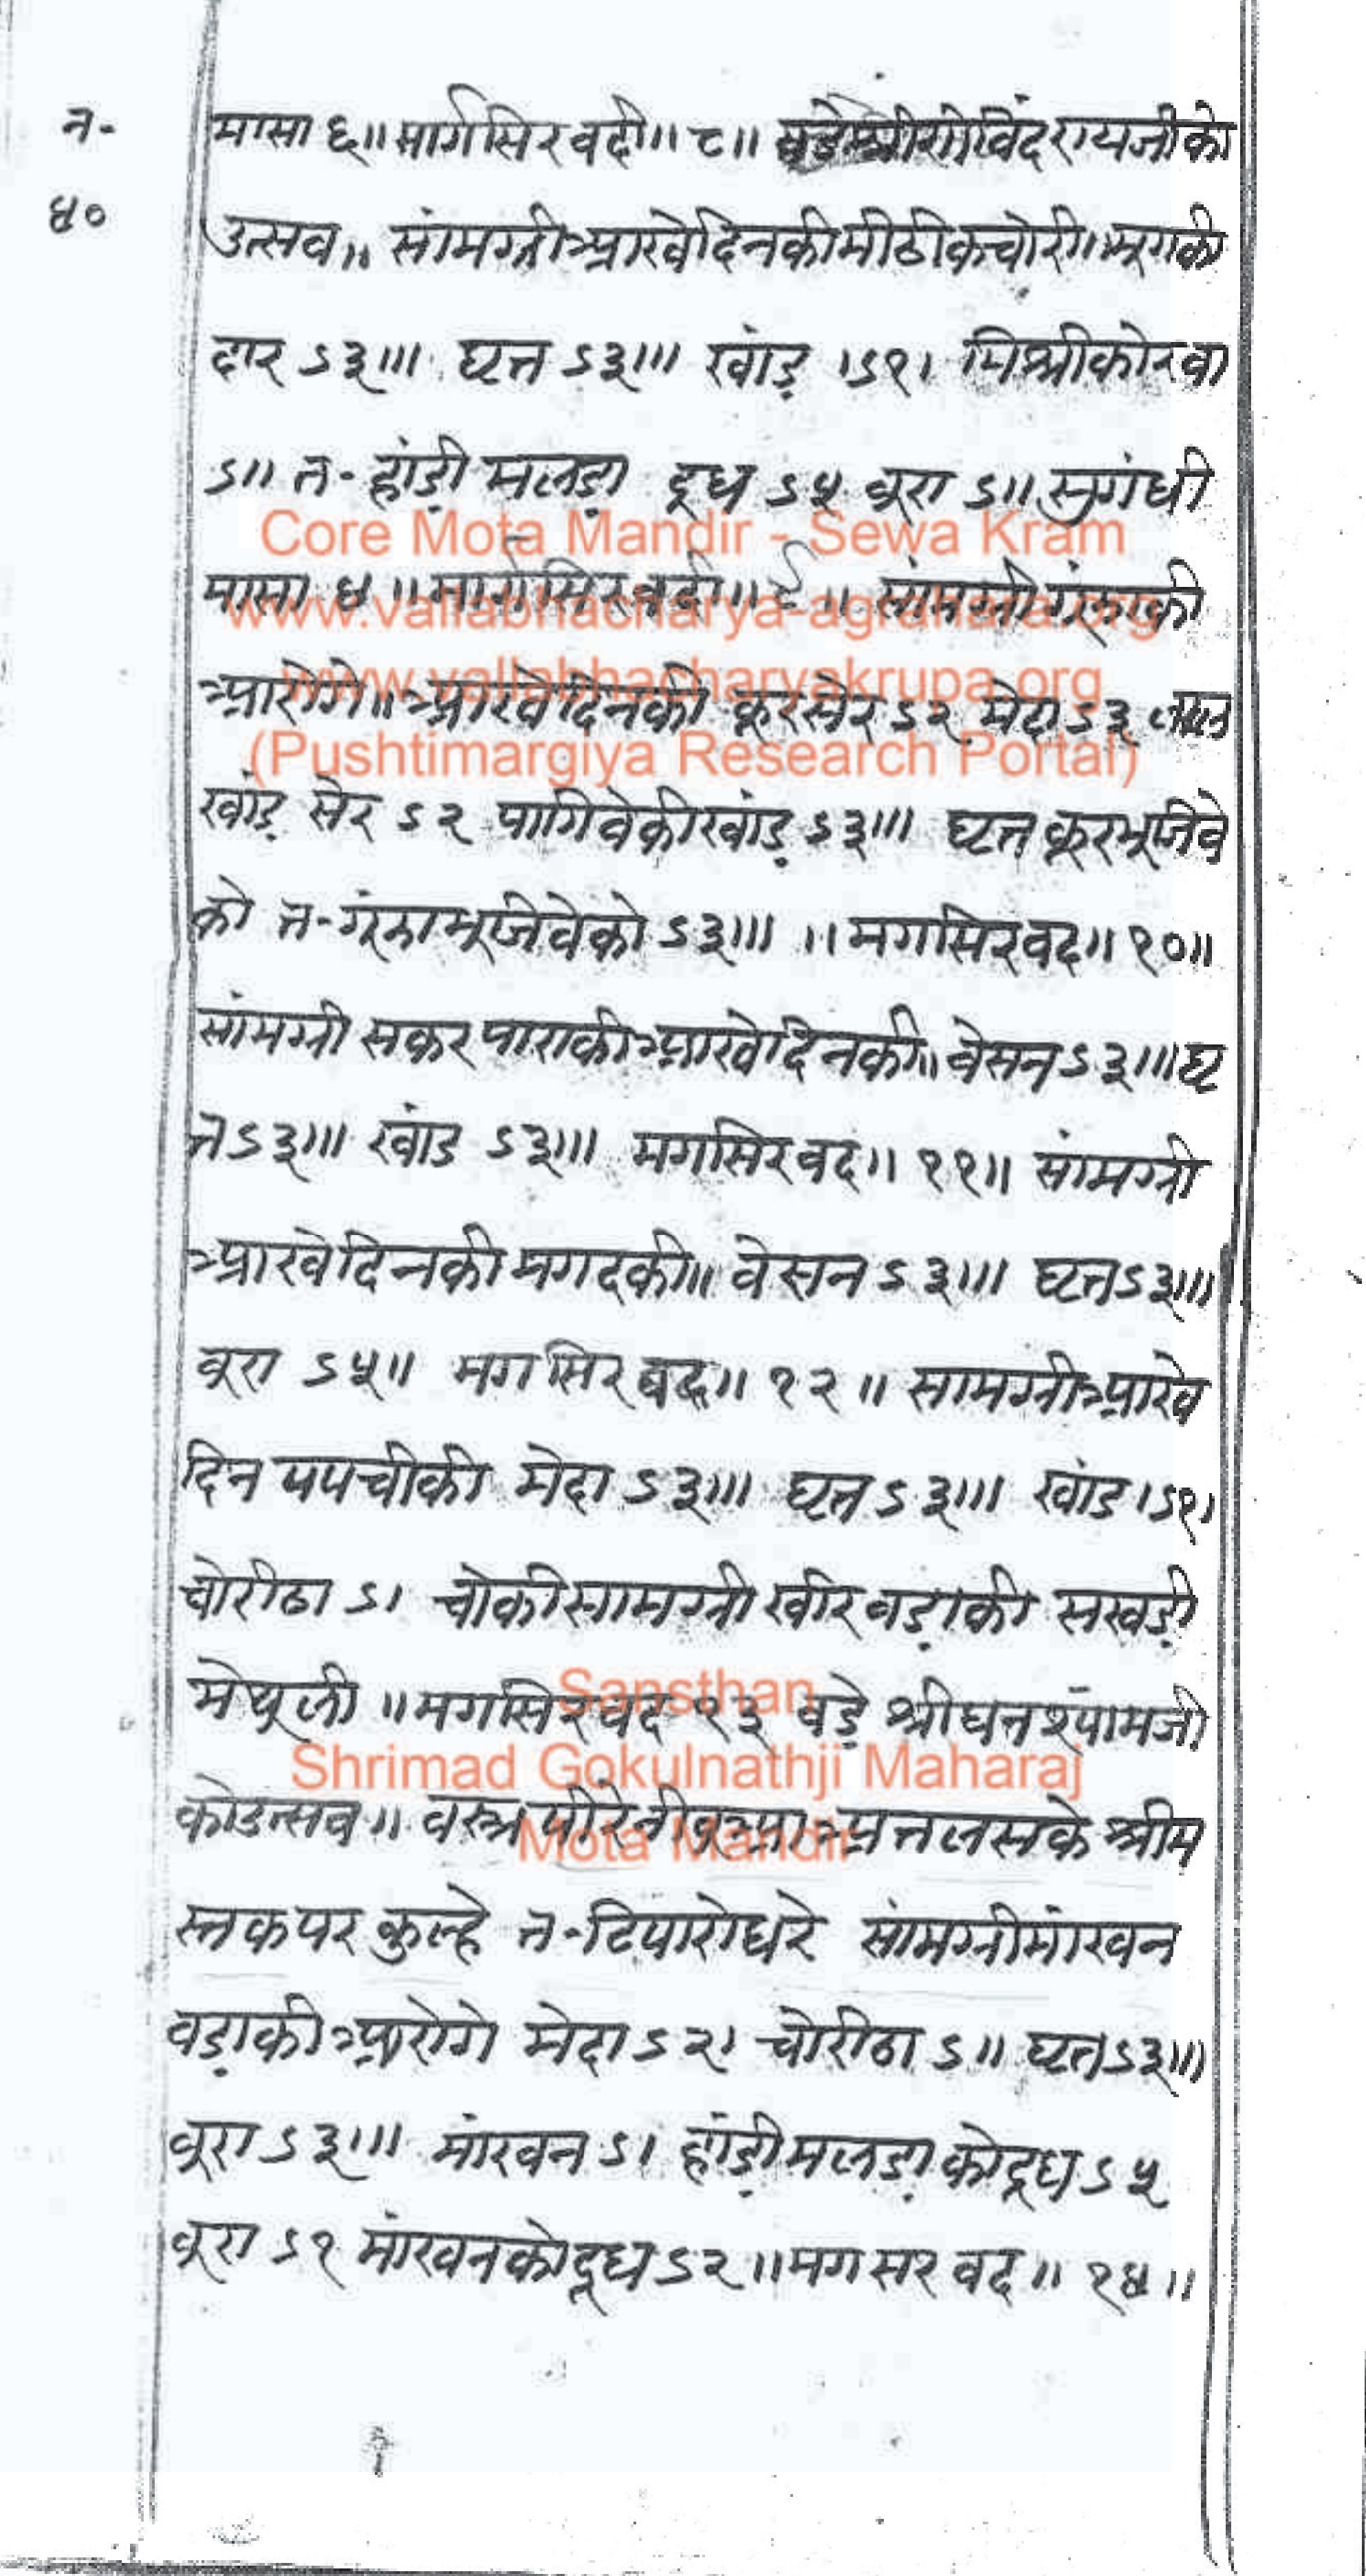 न-
४०
मासा ६॥ मार्गसिर वदी॥ ८॥ बडे श्रीगोविंदरायजीको
उत्सव॥ सांमग्री आखेदिनकी मीठी कचोरी॥ मूगकी
दार ऽ३॥। घृत ऽ३॥। खांड़ ।ऽ१। मिश्रीको रवा
ऽ॥ त- हांड़ी मलड़ा दूध ऽ५ बूरा ऽ॥ सुगंधी
मासा ४॥ मार्गसिर वदी॥ ९॥ सांमग्री गूंझाकी
आरोगे॥ आखेदिनकी कूरसेर ऽ२ मेदा ऽ३
खांड़ सेर ऽ२ पागिवेकी खांड़ ऽ३॥। घृत कूरभूजिवे
को त- गूंझा भूजिवेको ऽ३॥। ॥ मगसिर वद॥ १०॥
सांमग्री सकरपाराकी आखेदिनकी॥ वेसन ऽ३॥। घृ
त ऽ३॥। खांड ऽ३॥। मगसिर वद॥ ११॥ सांमग्री
आखेदिनकी मगदकी॥ वेसन ऽ३॥। घृत ऽ३॥।
बूरा ऽ५॥ मगसिर वद॥ १२॥ सामग्री आखे
दिन पपचीकी मेदा ऽ३॥। घृत ऽ३॥। खांड ।ऽ१।
चोरीठा ऽ। चोकी सामग्री खीरवड़ाकी सखड़ी
मेथूली ॥ मगसिर वद १३ बड़े श्रीघनश्यामजी
कोउत्सव॥ वस्त्र पीरे अतलसके श्रीम
स्तकपर कुल्हे त- टिपारो धरे सांमग्री मांखन
वड़ाकी आरोगे मेदा ऽ२। चोरीठा ऽ॥ घृत ऽ३॥।
बूरा ऽ३॥। मांखन ऽ। हांड़ी मलड़ा को दूध ऽ५
बूरा ऽ१ मांखनको दूध ऽ२॥ मगसर वद॥ १४॥
Core Mota Mandir - Sewa Kram
www.vallabhacharya-agrahara.org
www.vallabhacharyakrupa.org
(Pushtimargiya Research Portal)
Sansthan
Shrimad Gokulnathji Maharaj
Mota Mandir